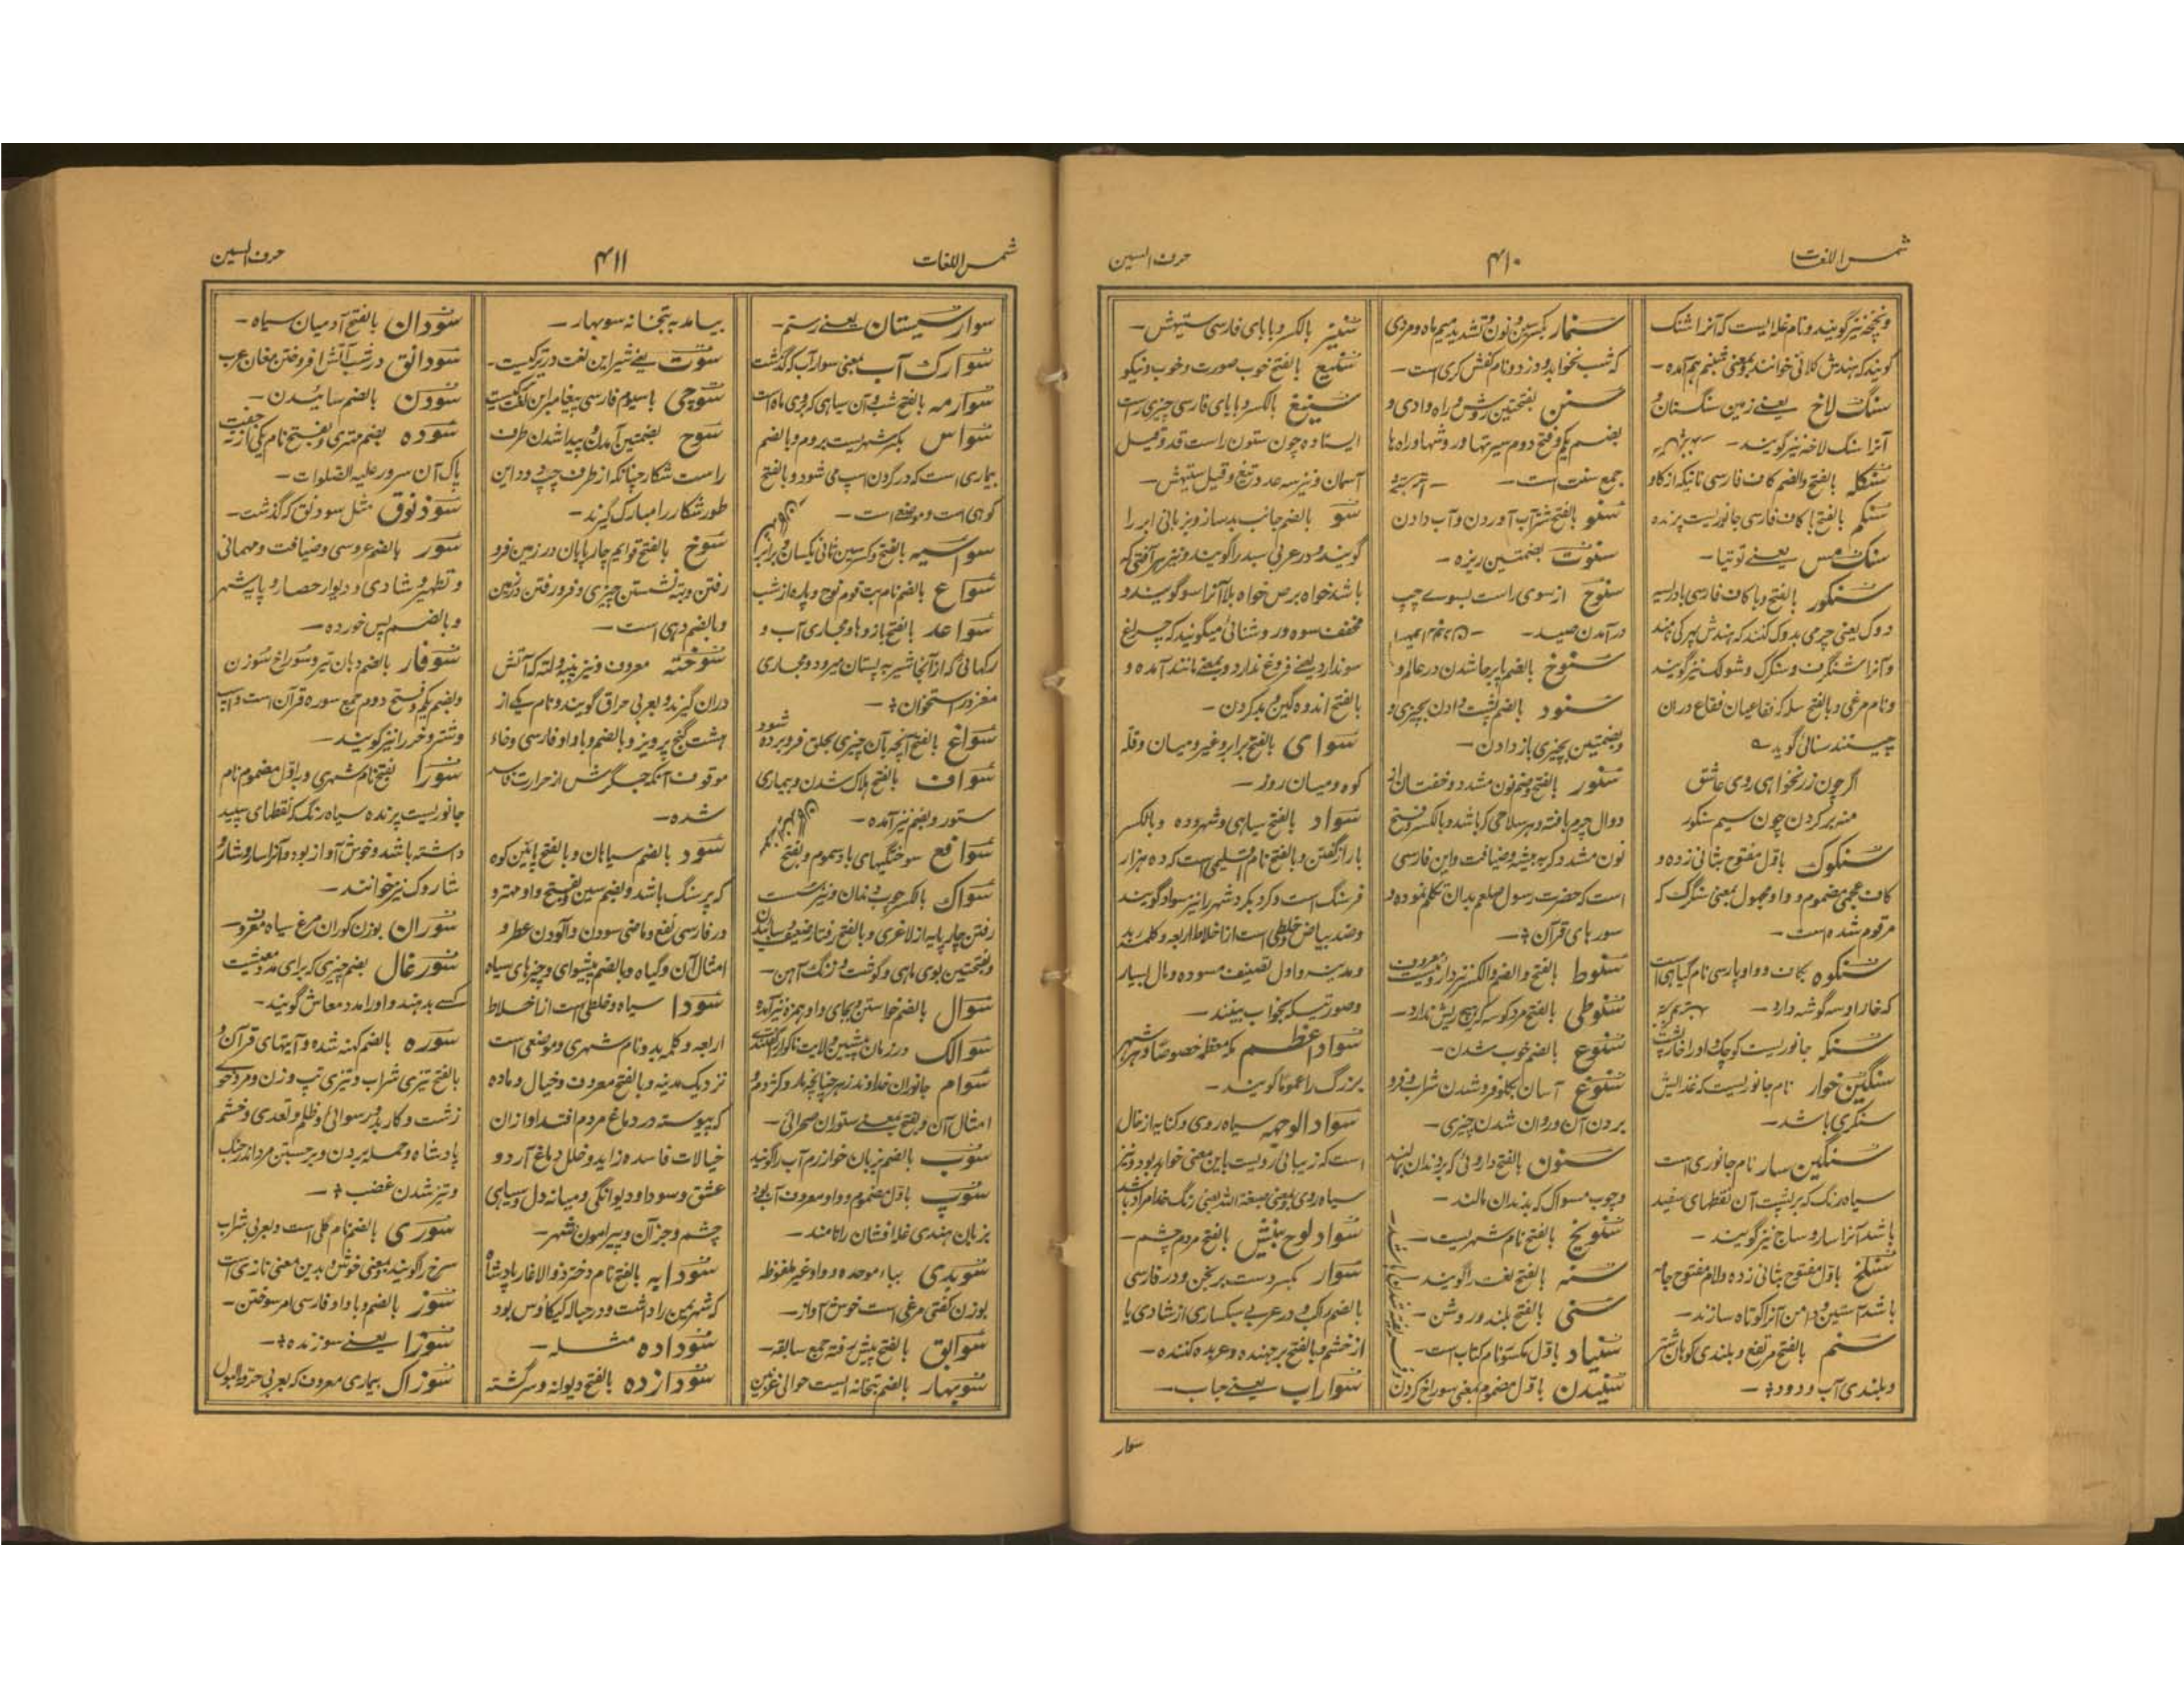 شمس اللغات
۴۱۰
حرف السین
ونچخه نیز گویند و نام غله ایست که آنرا شنک
گویند که بهندش کلائی خوانند و بمعنی شبنم هم آمده –
سنگ لاخ یعنے زمین سنگستان و
آنرا سنگ لاخه نیز گویند –
سنکله بالفتح والضم کاف فارسی
سنکم بالفتح با کاف فارسی جانوریست پرنده
سنک مس یعنے توتیا –
سنکور بالفتح و با کاف فارسی بادریسه
دوک یعنی چرمی بدوک کنند که بهندش پهرکی نامند
و آنرا شنگرف و سنکرک و شولک نیز گویند
و نام مرغی و بالفتح سله که فقاعیان فقاع در ان
چینند سنائی گوید
اگر چون زر نخواهی روی عاشق
منه بر گردن چون سیم سنکور
سنکوک باوّل مفتوح بثانی زده و
کاف عجمی مضموم و واو مجهول بمعنی سنگرک که
مرقوم شده است –
سنکوه بکاف و واو پارسی نام گیاهی است
که خار او سه گوشه دارد –
سنکه جانوریست کوچک و او را خارپشت
سنگین خوار نام جانوریست که غذایش
سنکری باشد –
سنگین سار نام جانوری است
سیاه رنگ که بر پشت آن نقطهای سفید
باشد آنرا سار و ساج نیز گویند –
سنلخ باوّل مفتوح بثانی زده و لام مفتوح جامه
باشد آستین و دامن آنرا کوتاه سازند –
سنم بالفتح مرتفع و بلندی کوهان شتر
و بلندی آب و رود –
سنمار بکسر سین و نون و تشدید میم ماه و مردی
که شب نخوابد و دزد و نام کفش گری است –
سنن بفتحتین روش و راه وادی و
بضم یکم و فتح دوم سیرتها و روشها و راه ها
جمع سنت است –
سنو بالفتح شتر آب آوردن و آب دادن
سنوت بضمتین ریزه –
سنوح از سوی راست بسوے چپ
در آمدن صید –
سنوخ بالضم پابرجا شدن در عالم و
سنود بالضم پشت دادن بچیزی و
بضمتین بچیزی باز دادن –
سنور بالفتح و ضم نون مشدد و خفتان از
دوال چرم بافته و هر سلاحی که باشد و بالکسر و فتح
نون مشدد گربه بیشه و ضیافت و این فارسی
است که حضرت رسول صلعم بدان تکلم نموده و
سورهای قرآن –
سنوط بالفتح والضم والکسر
سنوطی بالفتح مرد کوسه که هیچ ریش ندارد –
سنوع بالضم خوب شدن –
سنوغ آسان بگلو فرو شدن شراب و فرو
بردن آن و روان شدن چیزی –
سنون بالفتح داروئی که بدندان بمالند
و چوب مسواک که بدندان مالند –
سنویخ بالفتح نام شهریست –
سنه بالفتح لغت را گویند –
سنی بالفتح بلند و روشن –
سنیاد باوّل مکسور نام کتاب است –
سنیدن باوّل مضموم بمعنی سوراخ کردن
سنیز بالکسر و با یای فارسی ستیهش –
سنیع بالفتح خوب صورت و خوب و نیکو
سنیغ بالکسر و با یای فارسی چیزی راست
ایستاده چون ستون راست قد و قیل
آسمان و نیز سه عدد و تیغ و قیل ستیهش –
سو بالضم جانب
گویند و در عربی سبد را گویند و نیز هر آفتی که
باشد خواه برص خواه بلا آنرا سو گویند و
مخفف سوه ور و شنائی میگویند که چراغ
سو ندارد یعنے فروغ ندارد و بمعنے مانند آمده و
بالفتح اندوهگین و بد کردن –
سوای بالفتح برابر و غیر و میان و قله
کوه و میان روز –
سواد بالفتح سیاهی و شهر و ده و بالکسر
با راز گفتن و بالفتح نام اقلیمی است که ده هزار
فرسنگ است و گرد بگرد شهر را نیز سواد گویند
و ضد بیاض و خلطی است از اخلاط اربعه و کلمه بد
و مدینه و اول تصنیف مسوده و مال بسیار
و صورتیکه بخواب بینند –
سواد اعظم مکه معظمه خصوصًا و هر شهر
بزرگ را عمومًا گویند –
سواد الوجهه سیاه روی و کنایه از خال
است که زیبائی رویست باین معنی خواهد بود و نیز
سیاه روی بمعنی صبغة الله یعنی رنگ خدا مراد باشد
سواد لوح بینش بالفتح مردم چشم –
سوار بکسر دست برنجن و در فارسی
بالضم راکب و در عربی سبکساری از شادی یا
از خشم و بالفتح برجهنده و عربده کننده –
سواراب یعنے حباب –
سوار
شمس اللغات
۴۱۱
حرف السین
سوار سیستان یعنے رستم –
سوارک آب بمعنی سوار آب که گذشت
سوارمه بالفتح شب و آن سیاهی که بروی ماه است
سواس بکسر شهریست بروم و بالضم
بیماری است که در گردن اسپ می شود و بالفتح
کوهی است و موضعے است –
سواسیه بالفتح و کسر سین ثانی یکسان و برابر
سواع بالضم نام بت قوم نوح و پاره از شب
سواعد بالفتح بازوها و مجاری آب و
رگهائی که از آنجا شیر به پستان میرود و مجاری
مغز در استخوان –
سواغ بالفتح آنچه بآن چیزی بحلق فرو برده شود
سواف بالفتح هلاک شدن و بیماری
ستور و بضم نیز آمده –
سوافع سوختگیهای باد سموم و بفتح
سواک بالکسر چوب دندان و نیز سست
رفتن چارپایه از لاغری و بالفتح رفتار ضعیف
و بفتحتین بوی ماهی و گوشت و زنگ آهن –
سوال بالضم خواستن و بجای واو همزه نیز آمده
سوالک در زمان پیشین ولایت ناگور را گفتند
سوام جانوران خداوند زهر چنانچه مار و کژدم و
امثال آن و بفتح بمعنے ستوران صحرائی –
سوب بالضم بزبان خوارزم آب را گویند
سوپ باوّل مضموم و واو معروف آب بود و
بزبان هندی غله افشان را نامند –
سوبدی بباء موحده و واو غیر ملفوظه
بوزن کفتی مرغی است خوش آواز –
سوابق بالفتح پیش رفته جمع سابقه –
سوبهار بالضم بتخانه ایست حوالی غزنین
بیامد به بتخانه سوبهار –
سوت یعنے شیر این لغت در ترکیست –
سوچی باسیوم فارسی پیغامبر این لغت ترکیست
سوح بضمتین آمدن و پیدا شدن طرف
راست شکار چنانکه از طرف چپ رود این
طور شکار را مبارک گیرند –
سوخ بالفتح قوایم چارپایان در زمین فرو
رفتن و بته نشستن چیزی و فرو رفتن در زمین
و بالضم دهی است –
سوخته معروف و نیز پنبه و لته که آتش
دران گیرند و بعربی حراق گویند و نام یکے از
هشت گنج پرویز و بالضم و با واو فارسی و خاء
موقوف آنکه جگرش از حرارت فاسد
شده –
سود بالضم سیاهان و بالفتح پائین کوه
که پرسنگ باشد و بضم سین و فتح واو مهتر و
در فارسی نفع و ماضی سودن و آلودن عطر و
امثال آن و گیاه و بالضم پیشوای و چیزهای سیاه
سودا سیاه و خلطی است از اخلاط
اربعه و کلمه بد و نام شهری و موضعی است
نزدیک مدینه و بالفتح معروف و خیال و ماده
که پیوسته در دماغ مردم افتد او ازان
خیالات فاسده زاید و خلل دماغ آرد و
عشق و سودا و دیوانگی و میانه دل و سیاهی
چشم و جز آن و پیرامون شهر –
سودابه بالفتح نام دختر ذو الاغار پادشاه
که شهر یمن را داشت و در حباله کیکاوس بود
سوداده مثله –
سودازده بالفتح دیوانه و سرگشته
سودان بالفتح آدمیان سیاه –
سودانق در شب آتش افروختن مغان عرب
سودن بالضم سائیدن –
سوده بضم مهتری و بفتح نام یکی از نه حفت
پاک آن سرور علیه الصلوات –
سوذنوق مثل سودنق که گذشت –
سور بالضم عروسی و ضیافت و مهمانی
و تطهیر و شادی و دیوار حصار و پایه شهر
و بالضم پس خورده –
سوفار بالضم دهان تیر و سوراخ سوزن
و بضم یکم و فتح دوم جمع سوره قرآن است و اسپ
و شتر و خر را نیز گویند –
سورا بفتح نام شهری و باوّل مضموم نام
جانوریست پرنده سیاه رنگ که نقطهای سپید
داشته باشد و خوش آواز بود و آنرا سار و شار و
شاروک نیز خوانند –
سوران بوزن کوران مرغ سیاه معروف –
سورغال بضم چیزی که برای مدد معیشت
کسے بدهند و او را مدد معاش گویند –
سوره بالضم کهنه شده و آیتهای قرآن و
بالفتح تیزی شراب و تیزی تپ و زن و مرد
زشت و کار بد و رسوائی و ظلم و تعدی و خشم
پادشاه و حمله بردن و برجستن مرد اندر جنگ
و تیز شدن غضب –
سوری بالضم نام گلی است و بعربی شراب
سرخ را گویند و بمعنی خوش و بدین معنی تازی است
سوز بالضم و با واو فارسی امر سوختن –
سوزا یعنے سوزنده –
سوزاک بیماری معروف که بعربی حرقة البول